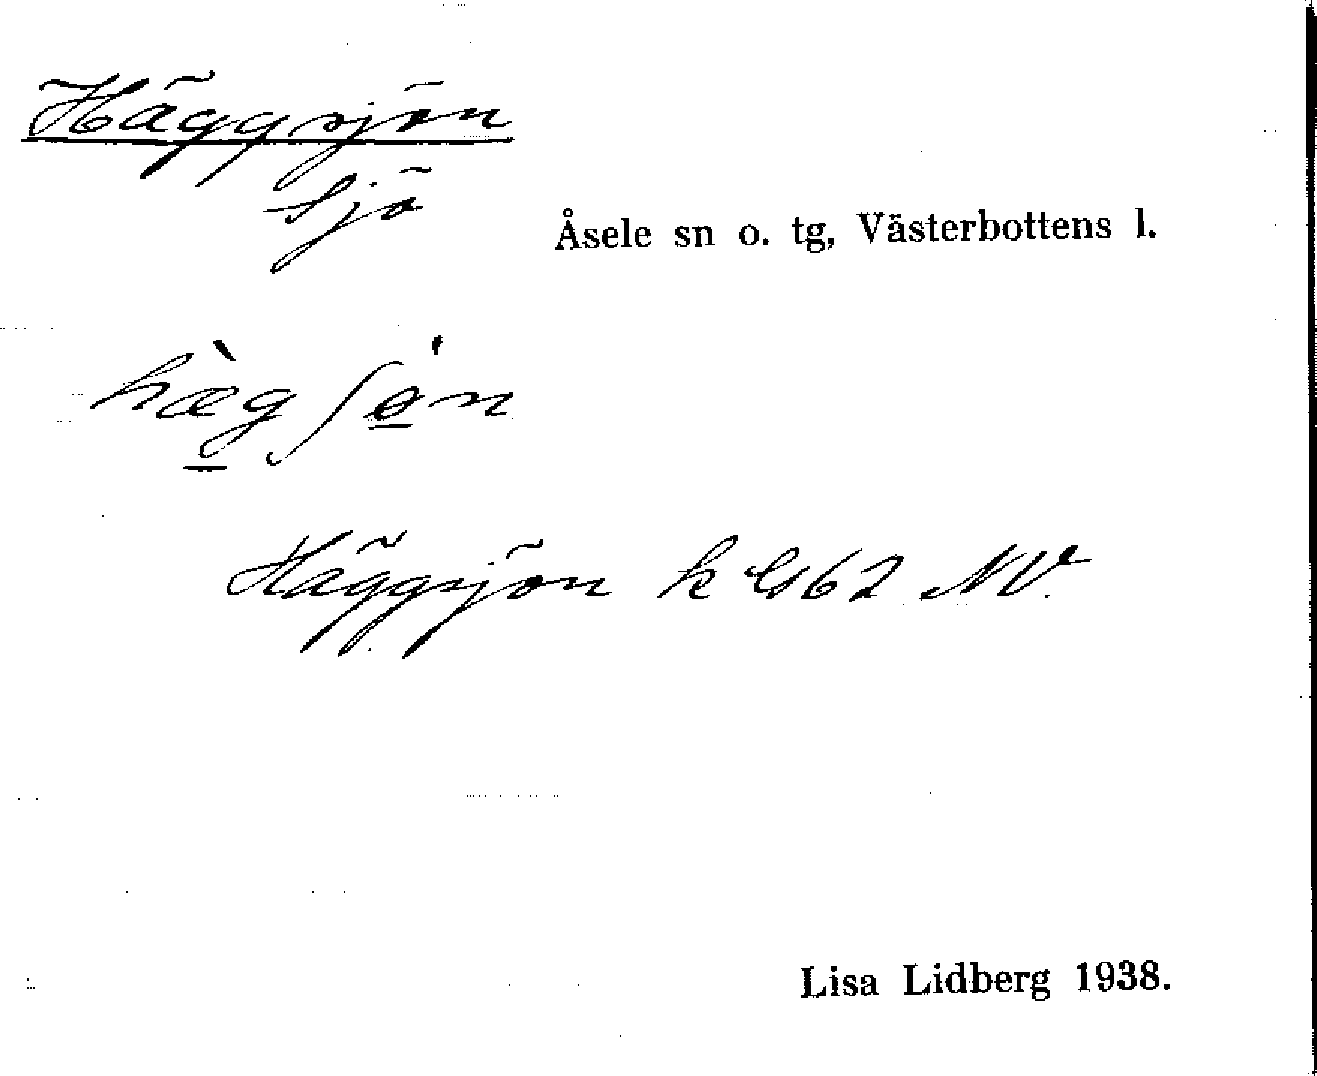 Häggsjön
Sjö
Åsele sn o. tg, Västerbottens l.
hæ̀gʃø̀n
Häggsjön k G62 NV.
Lisa Lidberg 1938.